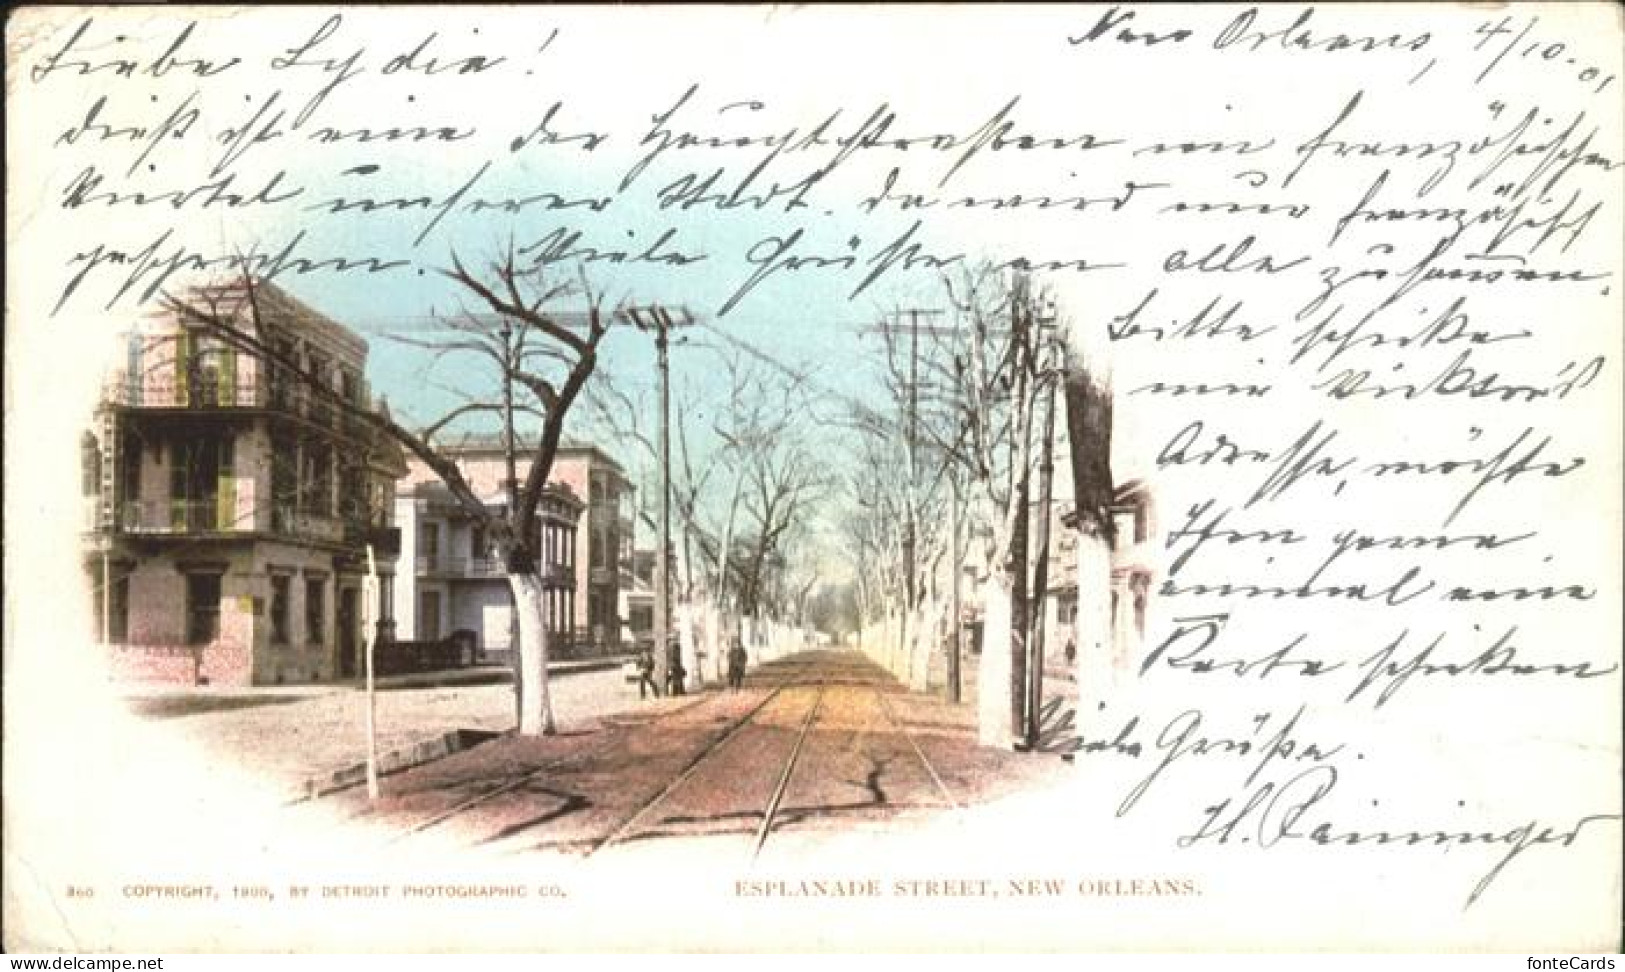 New Orleans, 4/10. 01
Liebe Lydia!
dieß ist eine der Hauptstraßen im französischen
Viertel unserer Stadt. da wird nur französisch
gesprochen. Viele Grüße an alle zuhausen.
Bitte schicke
mir Vicktor's
Adresse, möchte
Ihm gerne
einmal eine
Karte schicken
Viele Grüße.
H.
360 COPYRIGHT, 1900, BY DETROIT PHOTOGRAPHIC CO.
ESPLANADE STREET, NEW ORLEANS.
fonteCards